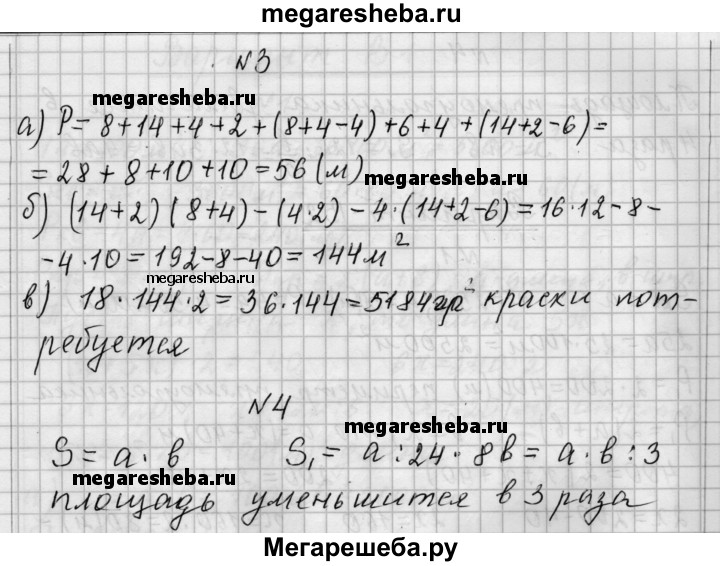 megaresheba.ru
№3
megaresheba.ru
а) P= 8+14+4+2+(8+4-4)+6+4+(14+2-6)=
=28+8+10+10=56(м)
megaresheba.ru
б) (14+2)(8+4)-(4·2)-4·(14+2-6)=16·12-8-
-4·10=192-8-40=144м²
megaresheba.ru
в) 18·144·2=36·144=5184гр² краски пот-
ребуется
№4
megaresheba.ru
S=a·b S₁=a:24·8b=a·b:3
megaresheba.ru
площадь уменьшится в 3 раза
Мегарешеба.ру